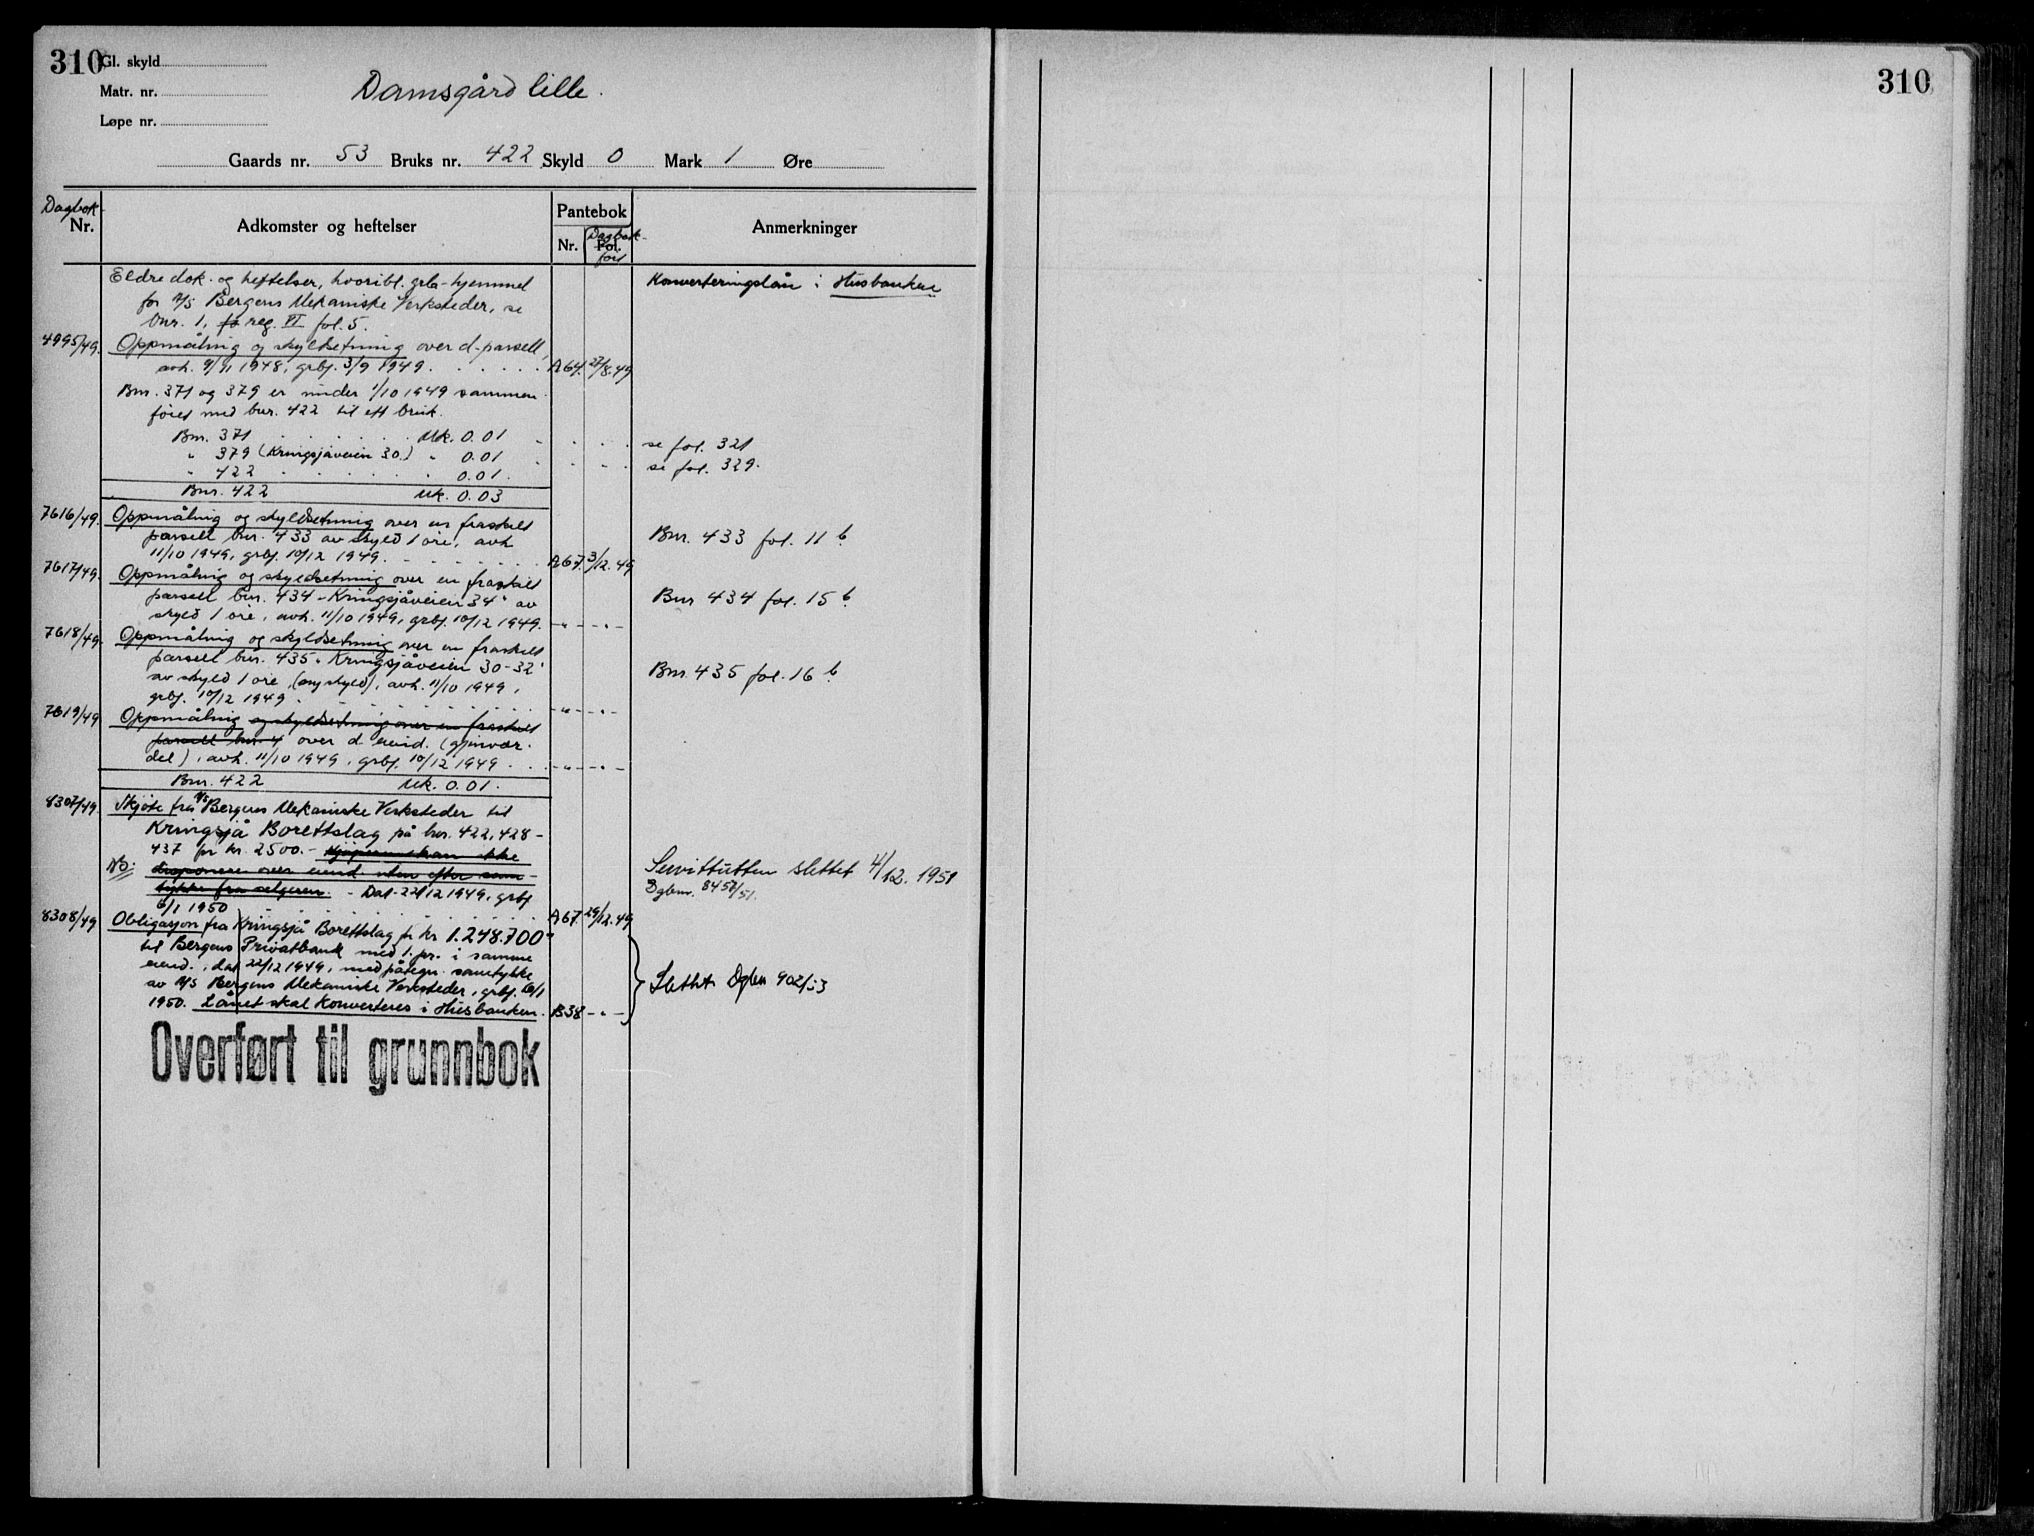 310
Gl. skyld
Matr. nr.
Løpe nr.
Damsgård lille.
Gaards nr. 53 Bruks nr. 422 Skyld 0 Mark 1 Øre
Dagbok-
Nr.
Adkomster og heftelser
Pantebok
Nr.
Dagbok-
Fol.
ført
Anmerkninger
Eldre dok. og heftelser, hvoribl. grb-hjemmel
for A/S Bergens Mekaniske Verksteder, se
bnr. 1, reg. VI fol. 5.
Konverteringslån i Husbanken
4995/49. Oppmåling og skyldsetning over d. parsell,
avh. 9/9 1948, grbf. 3/9 1949. A 64. 27/8.49
Bnr. 371 og 379 er under 1/10 1949 sammen-
føiet med bnr. 422 til ett bruk.
Bnr. 371 Mk. 0.01 se fol. 321
" 379 (Kringsjåveien 30.) " 0.01 se fol. 329.
" 422 0.01.
Bnr. 422 Mk. 0.03
7616/49. Oppmåling og skyldsetning over en fraskilt
parsell bnr. 433 av skyld 1 øre, avh.
11/10 1949, grbf. 10/12 1949. A 67. 3/12.49
Bnr. 433 fol. 11 b.
7617/49. Oppmåling og skyldsetning over en fraskilt
parsell bnr. 434 "Kringsjåveien 34" av
skyld 1 øre, avh. 11/10 1949, grbf. 10/12 1949. - " - - " -
Bnr 434 fol. 15 b.
7618/49. Oppmåling og skyldsetning over en fraskilt
parsell bnr. 435 "Kringsjåveien 30-32"
av skyld 1 øre, (ny skyld), avh. 11/10 1949,
grbf. 10/12 1949. - " - - " -
Bnr. 435 fol. 16 b.
7619/49 Oppmåling og skyldsetning over en fraskilt
parsell bnr. 4 over d. eiend. (gjenvær.
del), avh. 11/10 1949, grbf. 10/12 1949. - " - - " -
Bnr. 422 Mk. 0.01.
8307/49. Skjøte fra A/S Bergens Mekaniske Verksteder til
Kringsjå Borettslag på bnr. 422, 428-
437 for kr. 2500.- Kjøperen kan ikke
NB: disponere over eiend. uten efter sam-
tykke fra selgeren. - Dat. 22/12 1949, grbf.
6/1 1950 A 67 29/12.49
Servitutten slettet 4/12. 1951
Dgbnr. 8457/51.
8308/49 Obligasjon fra Kringsjå Borettslag for kr 1.248.700-
til Bergens Privatbank med 1. pr. i samme
eiend., dat. 22/12 1949, med påtegn. samtykke
av A/S Bergens Mekaniske Verksteder, grbf. 6/1
1950. Lånet skal konverteres i Husbanken. B38 - " -
Slettet Dgbnr 902/53
Overført til grunnbok
310